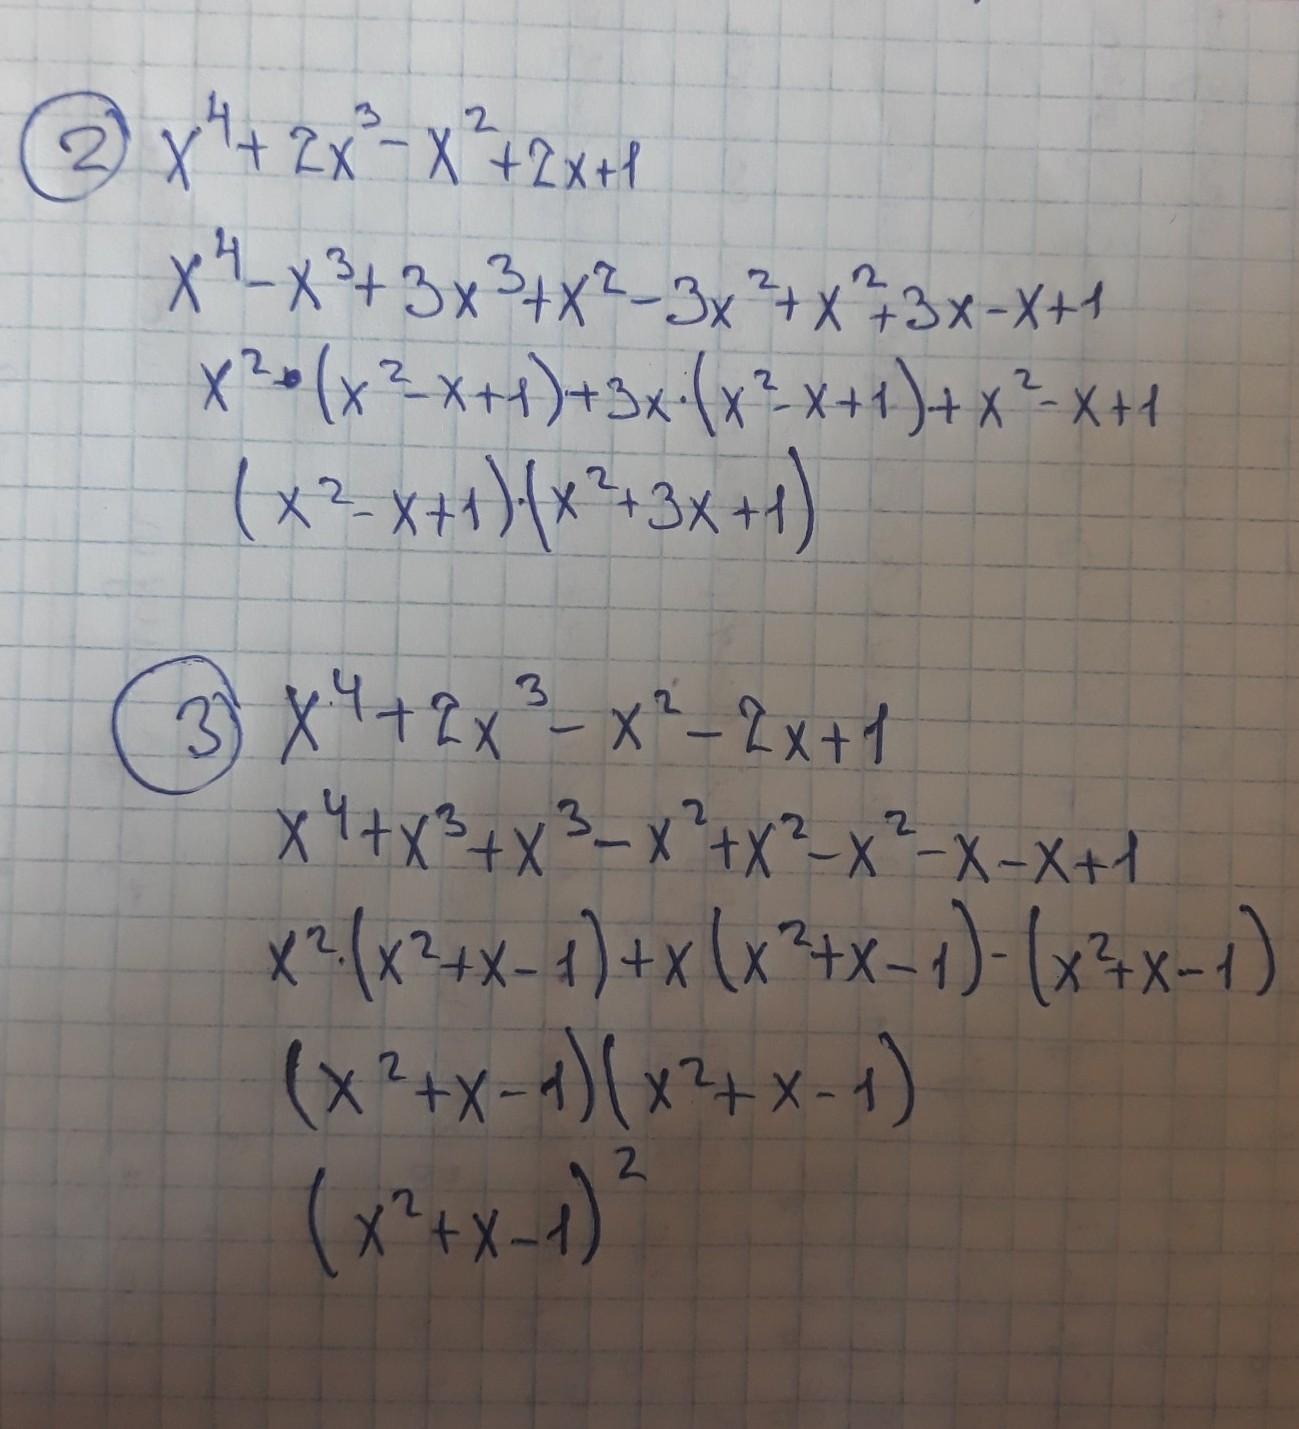 2 x⁴+2x³-x²+2x+1
x⁴-x³+3x³+x²-3x²+x²+3x-x+1
x²·(x²-x+1)+3x·(x²-x+1)+x²-x+1
(x²-x+1)·(x²+3x+1)
3 x⁴+2x³-x²-2x+1
x⁴+x³+x³-x²+x²-x²-x-x+1
x²·(x²+x-1)+x(x²+x-1)-(x²+x-1)
(x²+x-1)(x²+x-1)
(x²+x-1)²